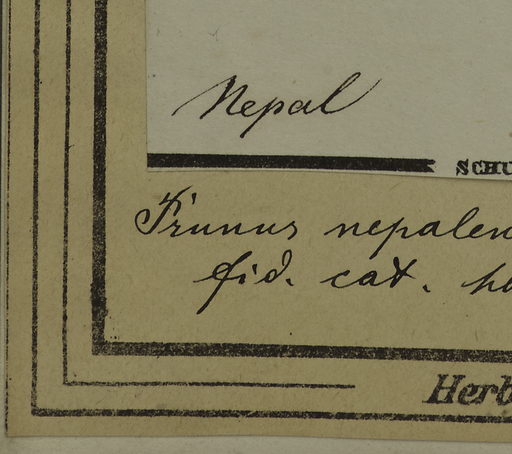 Nepal
SCHU
Prunus nepalen
fid. cat. h
Herb